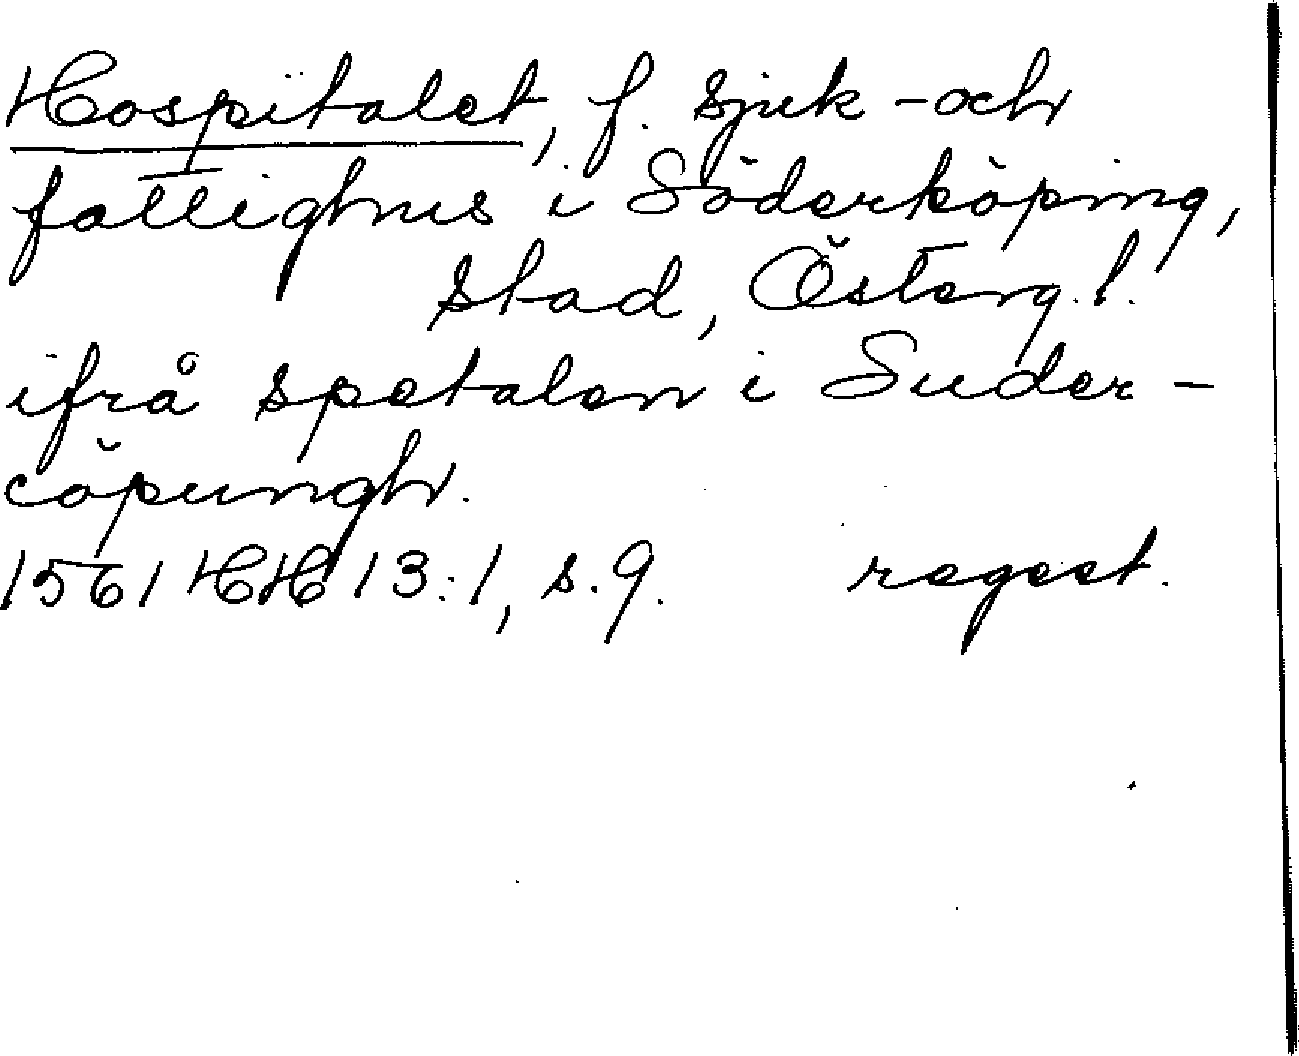 Hospitalet, f. sjuk- och
fattighus i Söderköping,
stad, Österg. l.
ifrå spetalen i Suder-
cöpungh.
1561 HH 13:1, s. 9. regest.